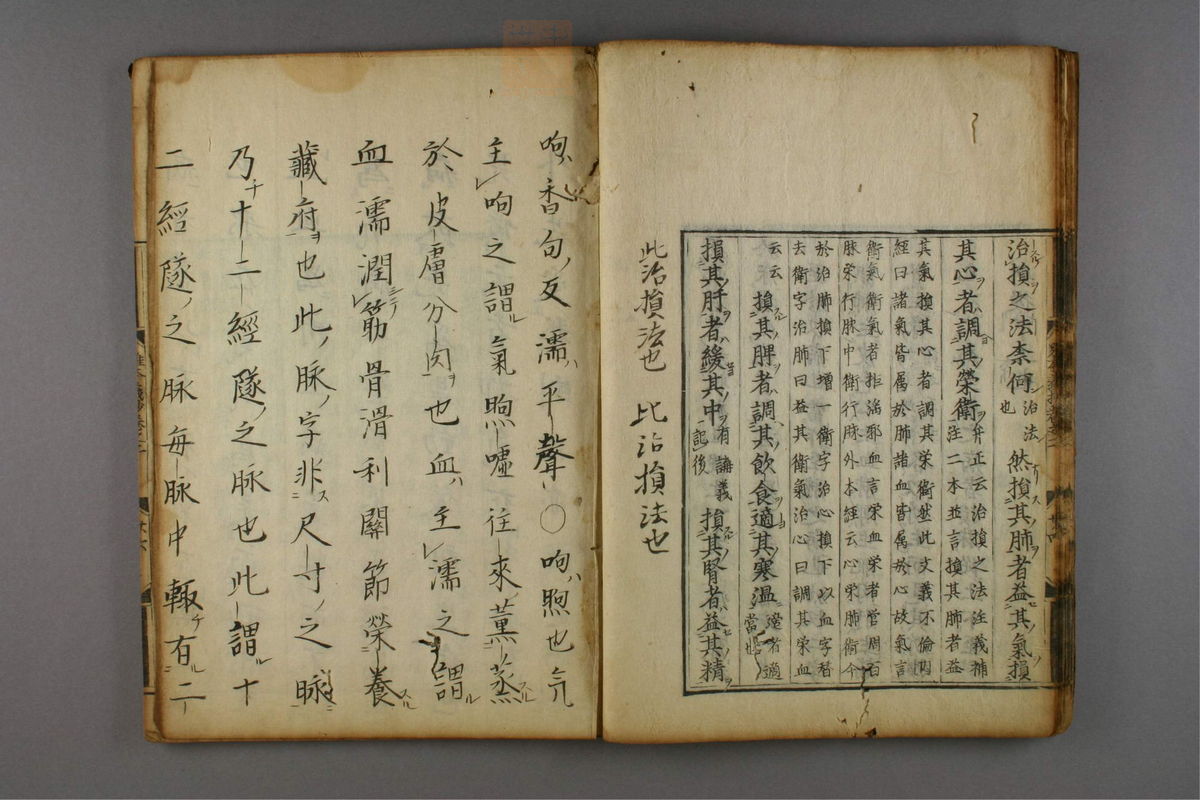 治損之法柰何治法也然損其肺者益其氣損
其心者調其榮衛弁正云治損之法注義補注二本並言損其肺者益
其氣損其心者調其栄衛然此文義不倫因
經曰諸氣皆属於肺諸血皆属於心故氣言
衛氣衛氣者拒滿邪血言栄血栄者管周百
脉栄行脉中衛行脉外本経云心栄肺衛今
於治肺損下增一衛字治心損下以血字替
去衛字治肺曰益其衛氣治心曰調其栄血
云云損其脾者調其飲食適其寒温適者適當也
損其肝者緩其中有誨義記後損其腎者益其精
此治損法也 此治損法也
呴香句ノ反濡ハ平聲○呴ハ煦也气
主レ呴之謂ル氣煦嘘往來薫蒸スル
於皮膚分肉ヲ也血ハ主レ濡之謂ル
血濡潤筋骨滑利關節榮養スル
藏府ヲ也此ノ脉ノ字非ス尺寸ノ之脉
乃チ十二經隧ノ之脉也此謂ル十
二經隧ノ之脉毎脉中輙チ有ル二